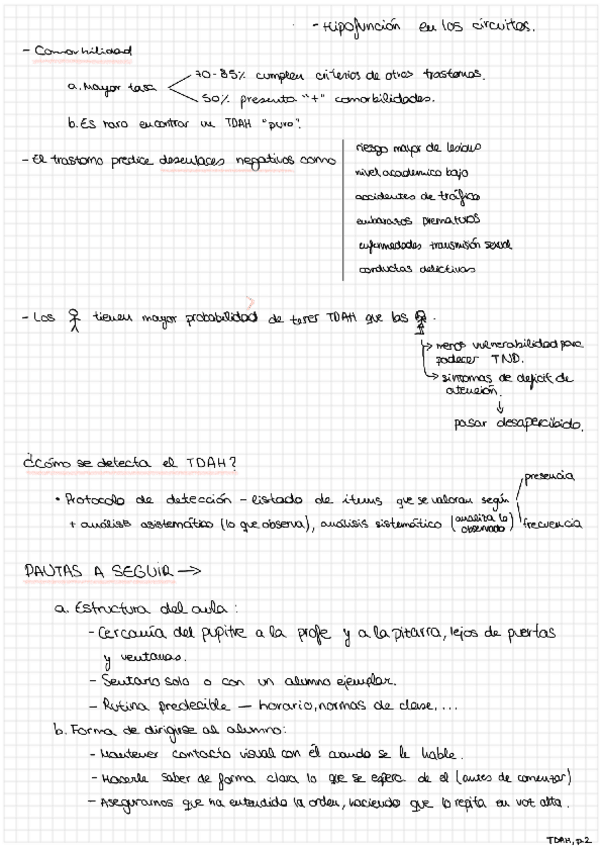 - Hipofunción en los circuitos.
- Comorbilidad
a. Mayor tasa
70-85% cumplen criterios de otros trastornos.
50% presenta "+" comorbilidades.
b. Es raro encontrar un TDAH "puro".
- El trastorno predice desenlaces negativos como
riesgo mayor de lesions
nivel académico bajo
accidentes de tráfico
embarazos prematuros
enfermedades transmisión sexual
conductas delictivas
- Los tienen mayor probabilidad de tener TDAH que las .
menos vulnerabilidad para
padecer TND.
síntomas de déficit de
atención.
↓
pasar desapercibido.
¿Cómo se detecta el TDAH?
• Protocolo de detección - listado de items que se valoran según
presencia
frecuencia
+ análisis asistemático (lo que observa), análisis sistemático (analiza lo observado)
PAUTAS A SEGUIR →
a. Estructura del aula:
- Cercanía del pupitre a la profe y a la pizarra, lejos de puertas
y ventanas.
- Sentarlo solo o con un alumno ejemplar.
- Rutina predecible — horario, normas de clase, ...
b. Forma de dirigirse al alumno:
- Mantener contacto visual con él cuando se le hable.
- Hacerle saber de forma clara lo que se espera de él (antes de comenzar)
- Asegurarnos que ha entendido la orden, haciendo que la repita en voz alta.
TDAH, p.2